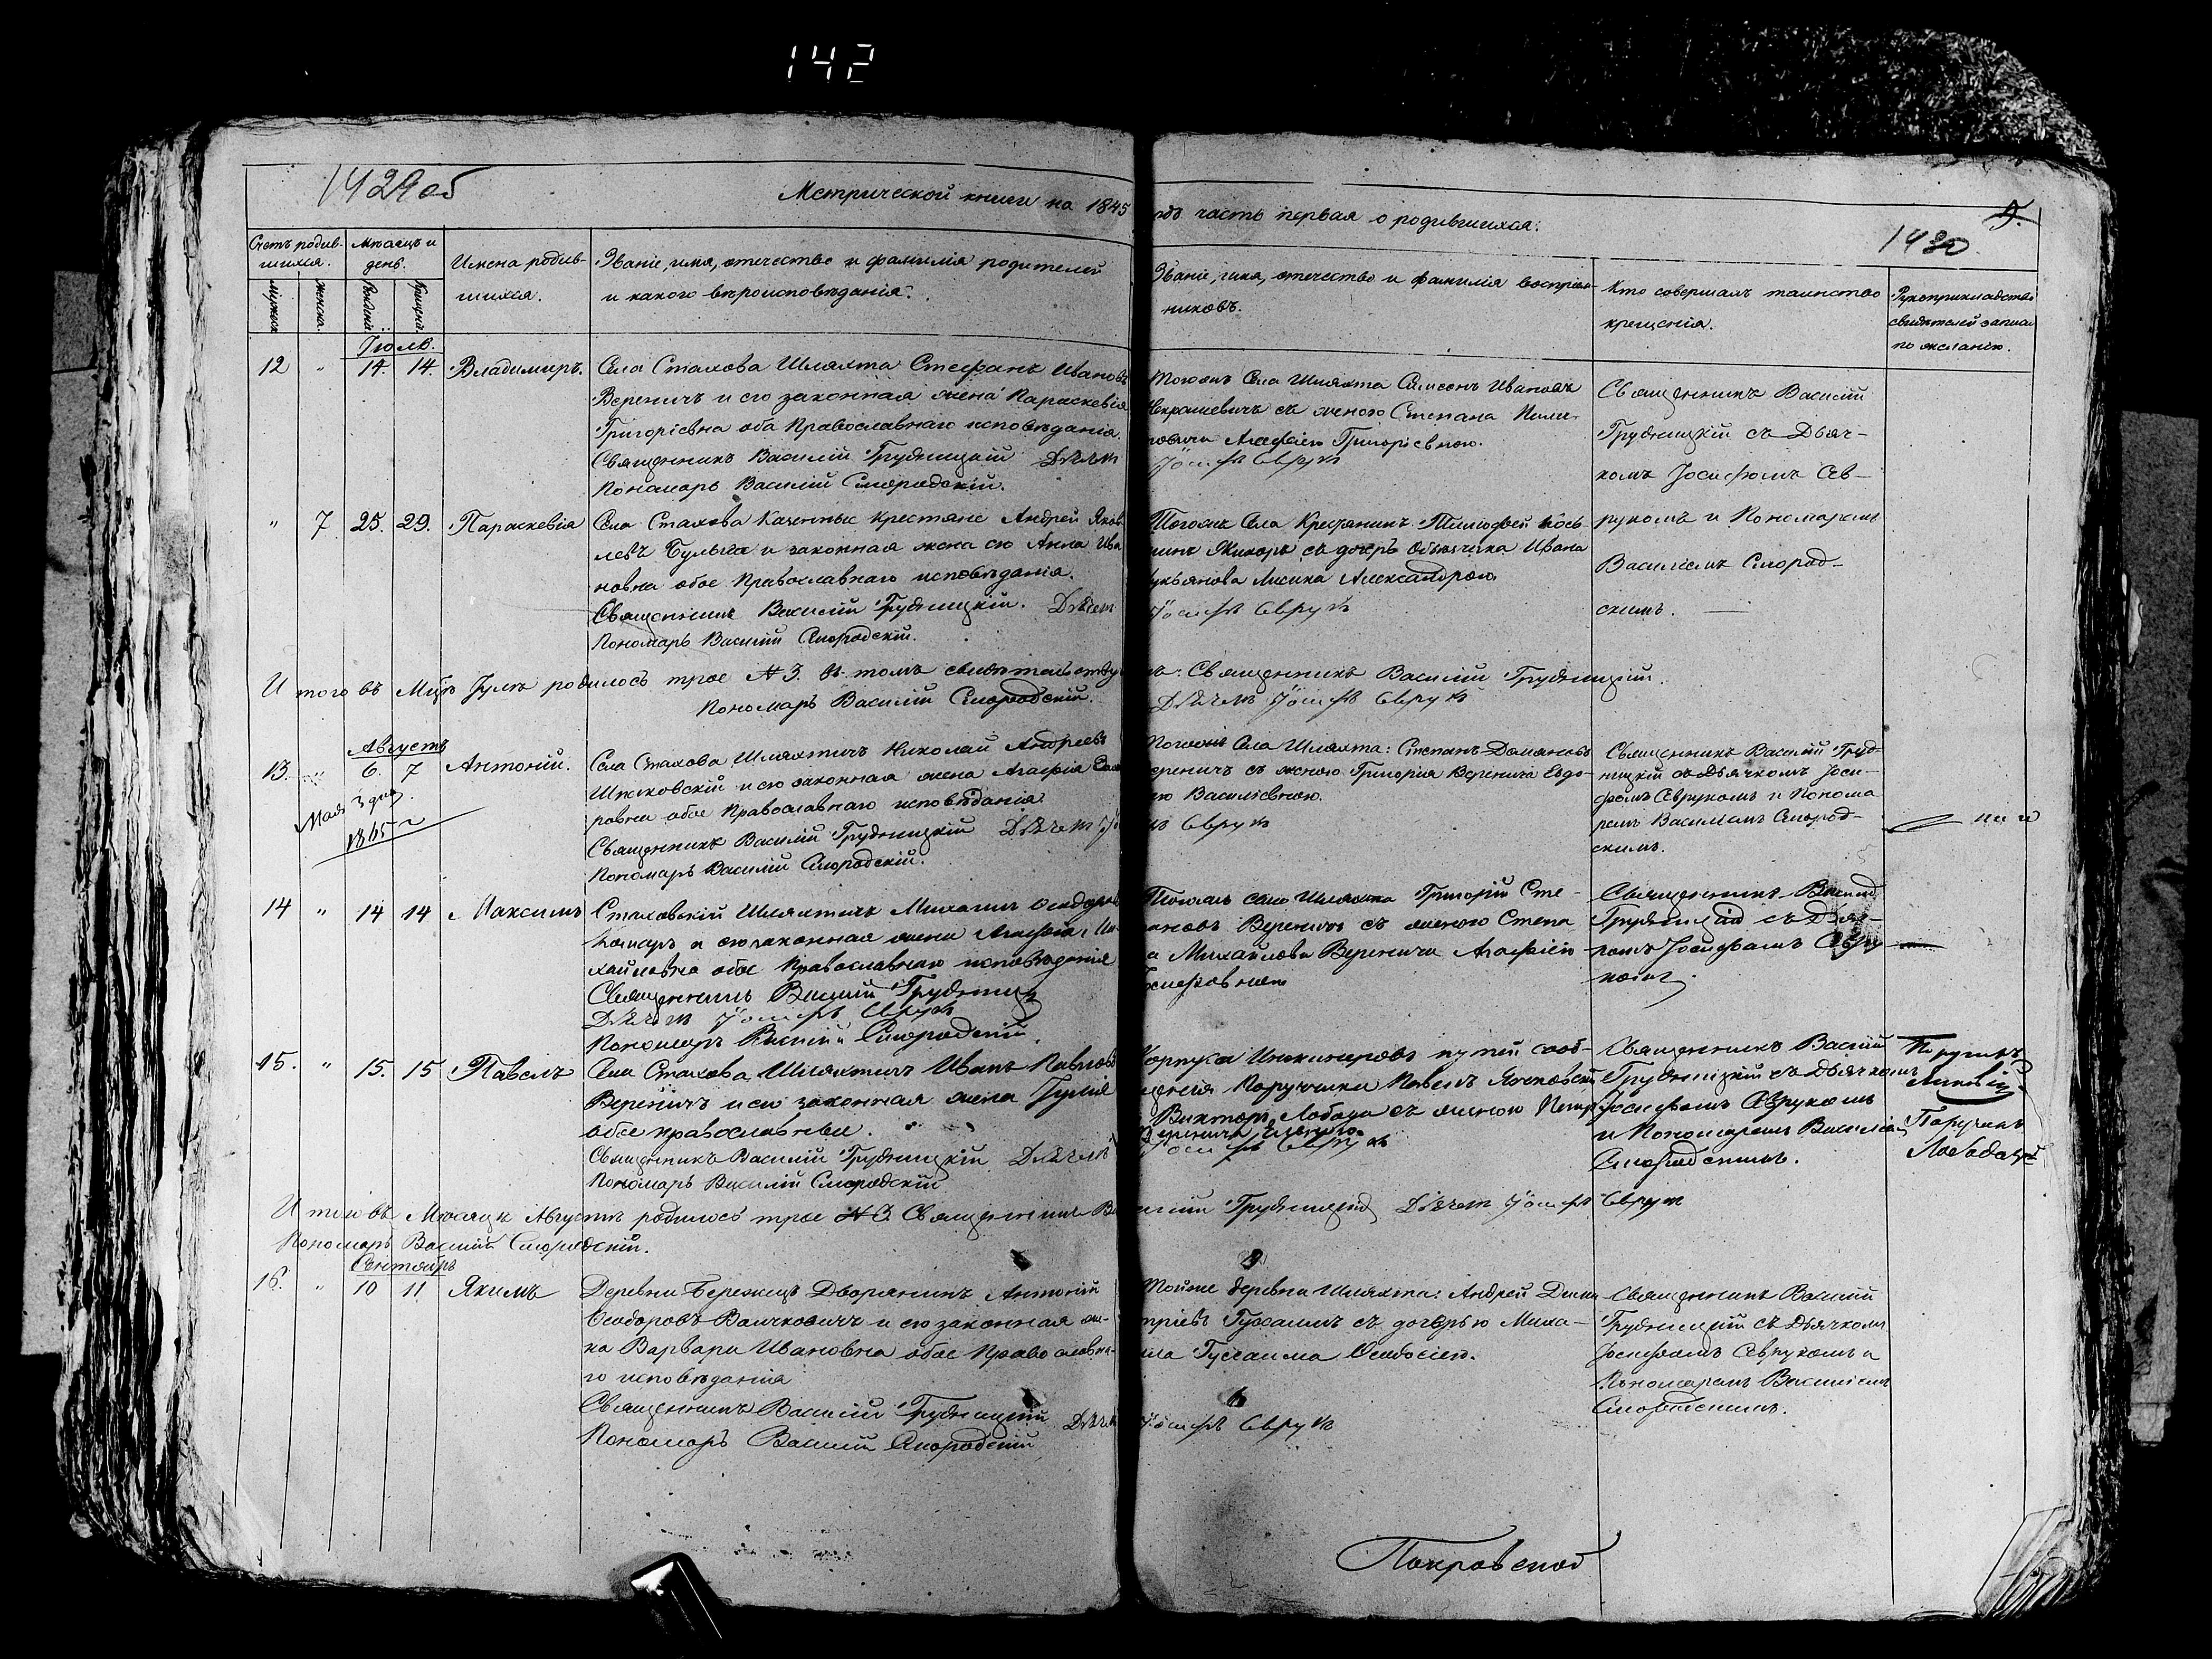 142
1429 об
Метрической книги на 1845
годъ часть первая о родившихся.
5.
1430
Счетъ родив-
шихся.
Мѣсяцъ и
день.
Имена родив-
шихся.
Званіе, имя, отечество и фамилія родителей
и какого вѣроисповѣданія.
Званіе, имя, отечество и фамилія воспріем-
никовъ.
Кто совершалъ таинство
крещенія.
Рукоприкладство
свидѣтелей записи
по желанію.
Мужеск
Женска.
Рожденія
Крещенія
Іюль.
12 " 14. 14. Владимиръ.
Села Стахова Шляхта Стефанъ Ивановъ
Вереничъ и его законная жена Параскевія
Григорієвна оба Православнаго исповѣданія.
Священникъ Василій Грудницкій Дьячекъ
Пономаръ Василій Смородскій.
Тогожъ Села Шляхта Самсонъ Ивановъ
Некрашевичъ съ женою Степана
Агафіею Григорієвною.
Іосифъ Еврукъ
Священникъ Василій
Грудницкій съ Дьяч-
комъ Іосифомъ Єв-
рукомъ и Пономаремъ
Василіемъ Смород-
скимъ.
" 7 25. 29. Параскевія
Села Стахова Казенные Крестяне Андрей Яков
левъ Булыга и законная жена єго Анна Ива
новна обое Православнаго исповѣданія.
Священникъ Василій Грудницкій. Дьячекъ
Пономаръ Василій Смородскій.
Тогожъ Села Крестянинъ Тимофей
съ дочерѣ Ивана
Александрою
Іосифъ Єврукъ
И того въ Мцѣ Іулѣ родилось трое № 3. въ томъ свидѣтельству
ємъ: Священникъ Василій Грудницкій.
Пономаръ Василій Смородскій.
Дьячекъ Іосифъ Єврукъ
Августъ
13. " 6. 7 Антоній.
Мая 3 дня
1865 г
Села Стахова Шляхтичъ Николай Андреевъ
и єго законная жена Агафія
ровна обое Православнаго исповѣданія
Священникъ Василій Грудницкій Дьячекъ Іо
Пономаръ Василій Смородскій.
Тогожъ Села Шляхта: Степанъ Домановъ
Вереничъ съ женою Григорія Веренича Евдо-
Василієвною.
Єврукъ
Священникъ Василій Груд-
ницкій съ Дьячкомъ Іоси-
фомъ Єврукомъ и Понома
ремъ Василіемъ Смород-
скимъ.
14 " 14 14 Максимъ
Стаховскій Шляхтичъ Михаилъ Феодоровъ
Комаръ и єго законная жена Агафія Ми
хайловна обое Православнаго исповѣданія
Священникъ Василій Грудницкій
Дьячекъ Іосифъ Єврукъ
Пономаръ Василій Смородскій.
Тогожъ села Шляхта Григорій Сте-
пановъ Вереничъ съ женою Степа
на Михайлова Веренича Агафіею
Іосифовною
Священникъ Василій
Грудницкій съ Дьяч-
комъ Іосифомъ Євру-
комъ.
15. " 15. 15 Павелъ
Села Стахова Шляхтичъ Иванъ Павловъ
Вереничъ и єго законная жена Іулія
обое православныя.
Священникъ Василій Грудницкій Дьячекъ
Пономаръ Василій Смородскій
Корпуса Инженеровъ путей сооб-
щенія Поручики Павелъ
Викторъ Лобода съ женою Петра
Веренича
Іосифъ Єврукъ
Священникъ Василій
Грудницкій съ Дьячкомъ
Іосифомъ Єврукомъ
и Пономаремъ Василіемъ
Смородскимъ.
Поручикъ
Поручикъ
Лобода
И того въ Мѣсяцѣ Августѣ родилось трое № 3. Священникъ Ва
силій Грудницкій Дьячекъ Іосифъ Єврукъ
Пономаръ Василій Смородскій.
Сентябрь
16. " 10 11 Якимъ
Деревни Бережецъ Дворянинъ Антоній
Феодоровъ Вашковичъ и єго законная же-
на Варвара Ивановна обое Православна-
го исповѣданія
Священникъ Василій Грудницкій Дьячек
Пономаръ Василій Смородскій
Тойже деревни Шляхта: Андрей Дими
тріевъ съ дочерью Миха-
ила Феодосіею.
Іосифъ Єврукъ
Священникъ Василій
Грудницкій съ Дьячкомъ
Іосифомъ Єврукомъ и
Пономаремъ Василіемъ
Смородскимъ.
Покровской